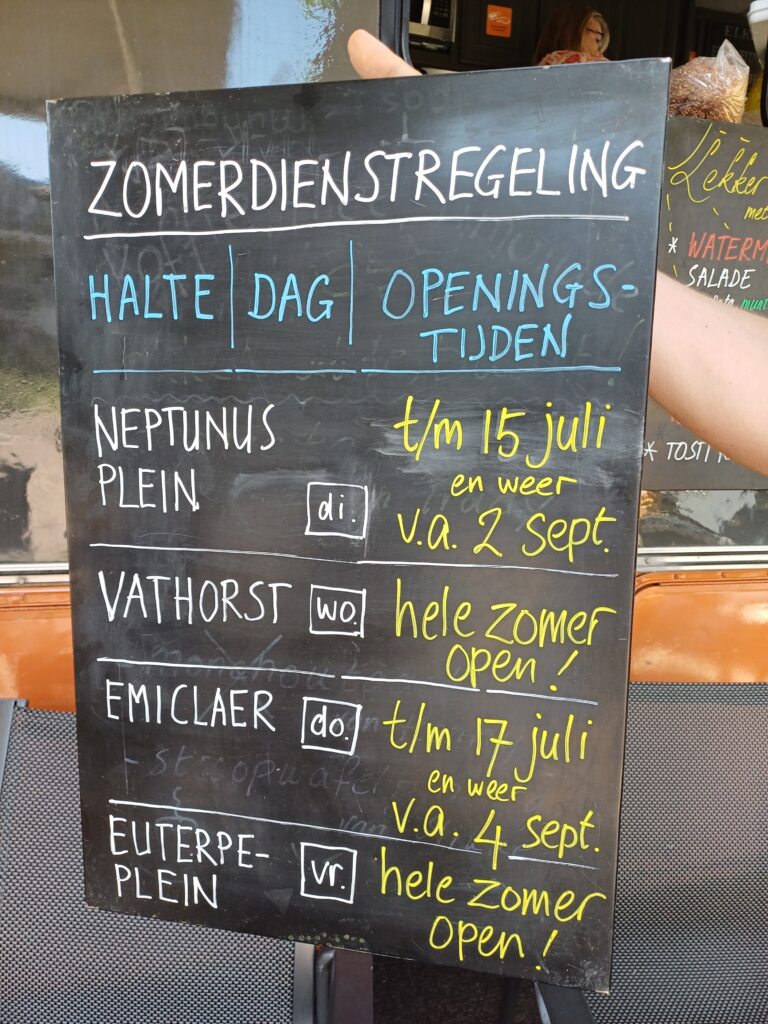 ZOMERDIENSTREGELING
HALTE DAG OPENINGS-
TIJDEN
NEPTUNUS
PLEIN di.
t/m 15 juli
en weer
v.a. 2 sept.
VATHORST wo.
hele zomer
open!
EMICLAER do.
t/m 17 juli
en weer
v.a. 4 sept.
EUTERPE-
PLEIN vr.
hele zomer
open!
Lekker
met
* WATERM
SALADE
munt
* TOSTI